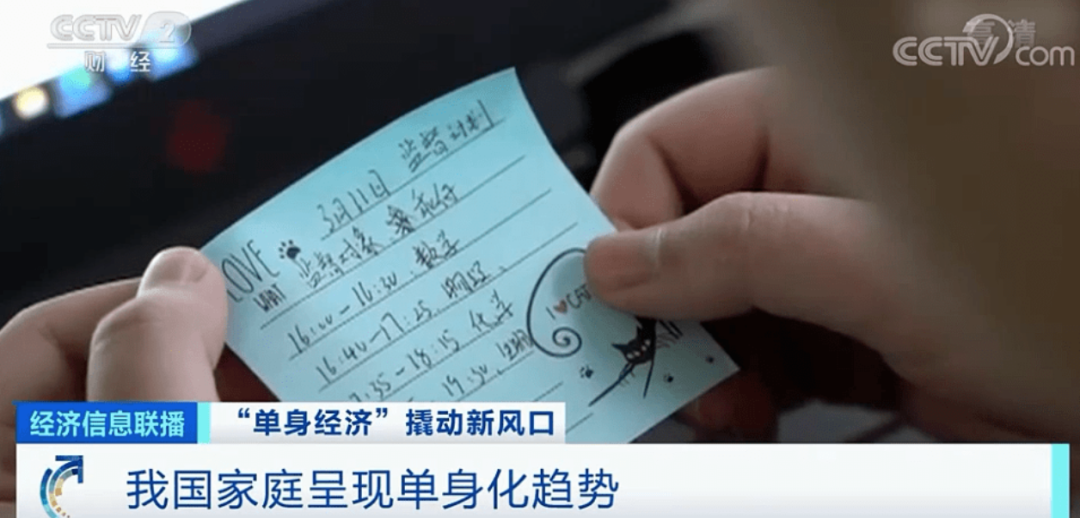 CCTV 2
财经
高清
CCTV.com
3月11日 监督计划
LOVE
WAT 监督对象
16:00-16:30.数学
16:40-17:25.物理.
:35-18:15 化学
19:30.
I ♥ CAT
经济信息联播
“单身经济”撬动新风口
我国家庭呈现单身化趋势